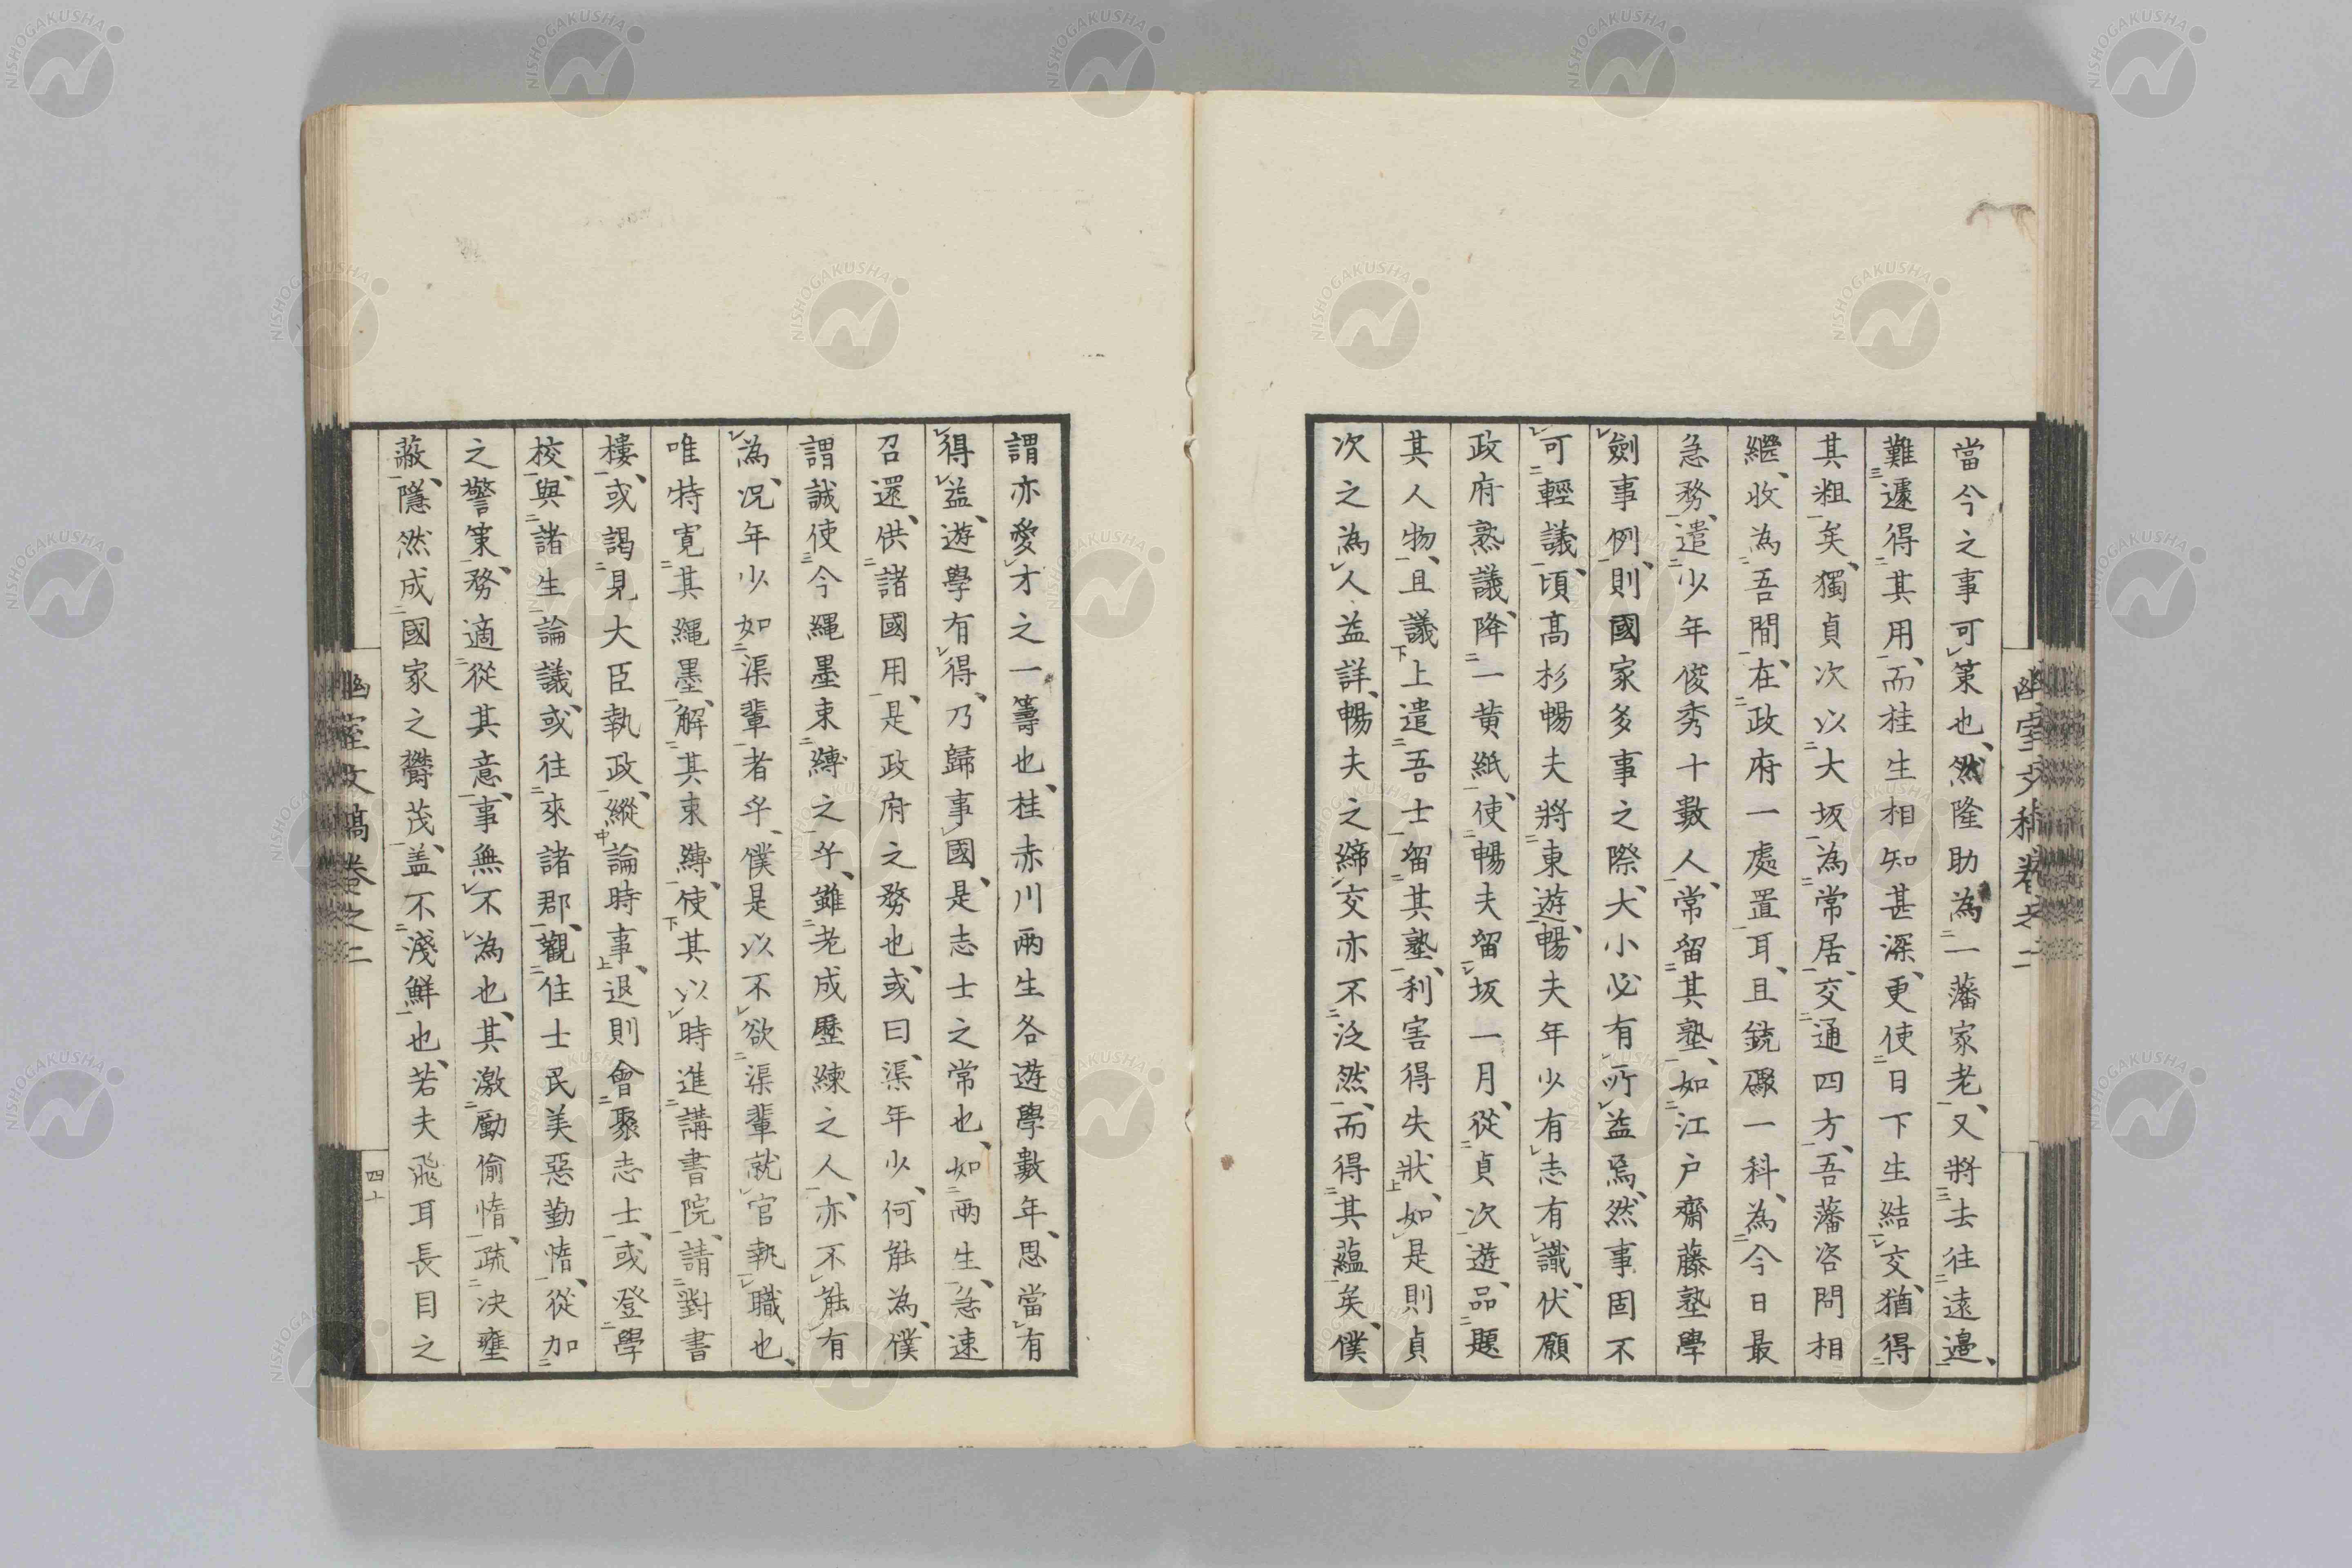 幽室文稿卷之二
當今之事可策也、然隆助為一藩家老、又將去往遠邉、
難遽得其用、而桂生相知甚深、更使日下生結交、猶得
其粗矣、獨貞次以大坂為常居、交通四方、吾藩咨問相
繼、收為吾間、在政府一處置耳、且銃礮一科、為今日最
急務、遣少年俊秀十數人、常留其塾、如江戸齋藤塾學
劍事例、則國家多事之際、大小必有所益焉、然事固不
可輕議、頃髙杉暢夫將東遊、暢夫年少有志有識、伏願
政府熟議、降一黄紙、使暢夫留坂一月、從貞次遊、品題
其人物、且議上遣吾士留其塾、利害得失狀、如是則貞
次之為人益詳、暢夫之締交亦不泛然、而得其蘊矣、僕
謂亦愛才之一籌也、桂赤川兩生各遊學數年、思當有
得益、遊學有得、乃歸事國、是志士之常也、如兩生、急速
召還、供諸國用、是政府之務也、或曰、渠年少、何能為、僕
謂誠使今縄墨束縛之乎、雖老成歴練之人、亦不能有
為、况年少如渠輩者乎、僕是以不欲渠輩就官執職也、
唯特寛其縄墨、解其束縛、使其以時進講書院、請對書
樓、或謁見大臣執政、縱論時事、退則會聚志士、或登學
校、與諸生論議、或往來諸郡、觀住士民美惡勤惰、從加
之警策、務適從其意、事無不為也、其激勵偷惰、疏决壅
蔽、隱然成國家之欝茂、盖不淺鮮也、若夫飛耳長目之
幽室文稿卷之二
四十